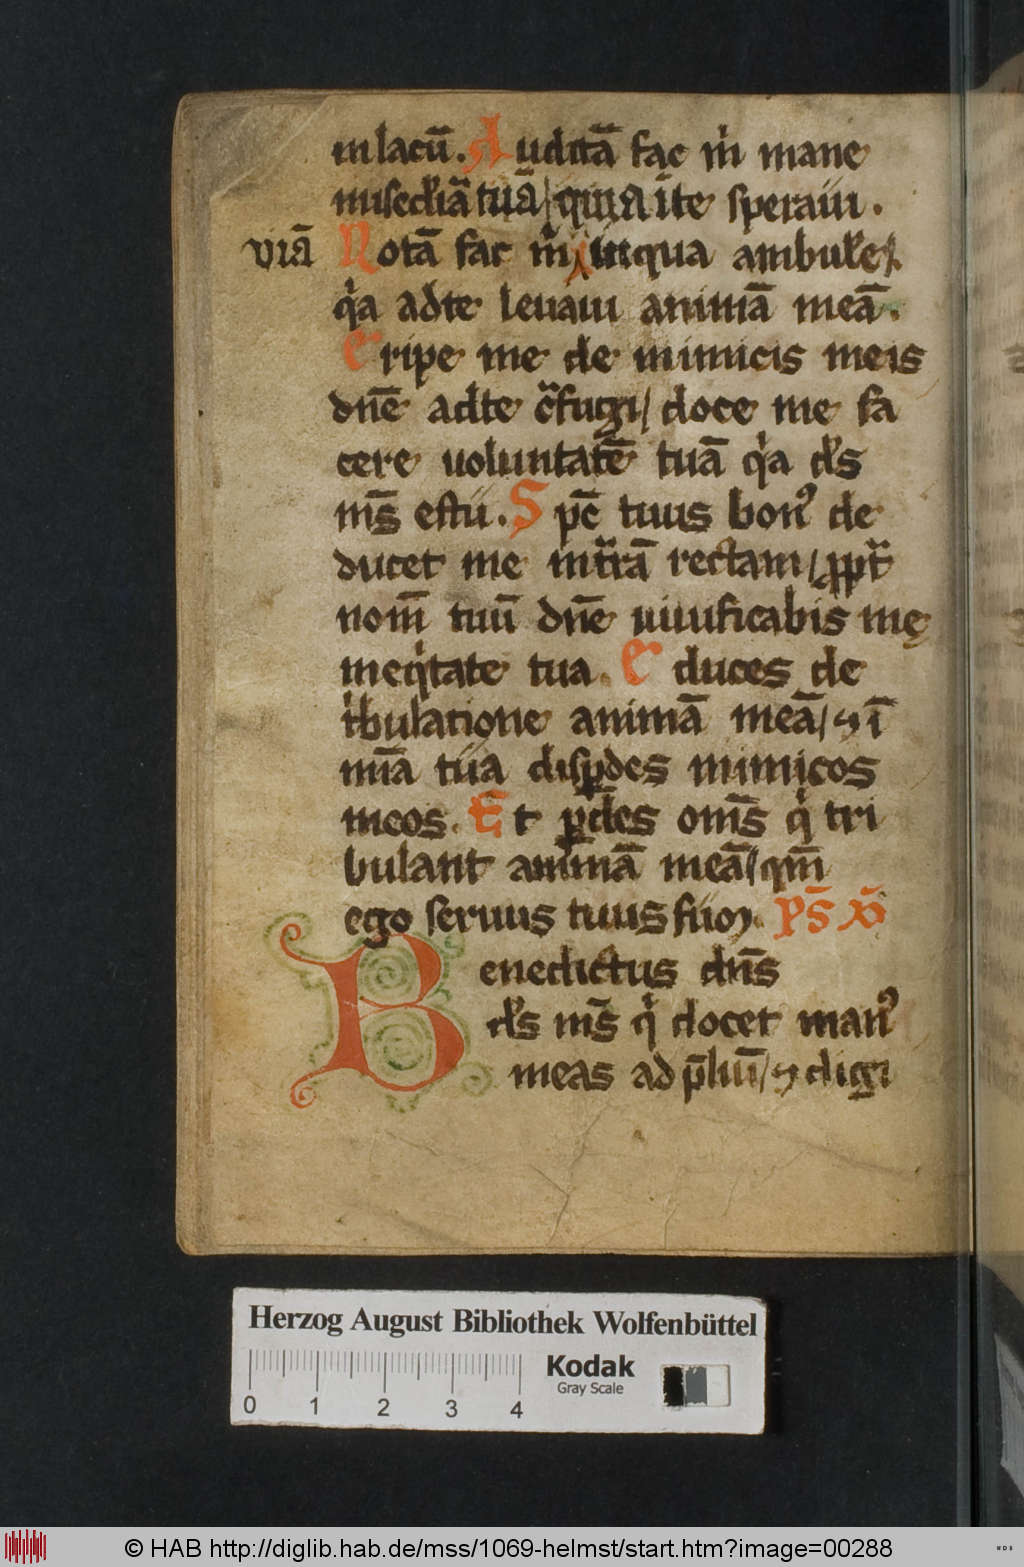 in lacū. Auditā fac m̄ mane
misẽdiā tuā/ quia ī te speraui.
viā Notā fac m̄ in qua ambulē
q̇a ad te leuaui animā meā.
Eripe me de inimicis meis
dnē ad te ↄ̃fugi/ doce me fa
cere uoluntatē tuā q̇a ds̃
ms̄ es tu. Spc̄ tuus bonꝰ de
ducet me in t̃rā rectam/ ꝓpt̃
nom̄ tuū dnē uiuificabis me
in eq̇tate tua. Educes de
t̍bulatione animā meā/ ⁊ ī
mīa tua disꝑdes inimicos
meos. Et ꝑdes om̄s q̇ tri
bulant animā meā/ qm̄
ego seruus tuus sū.
Benedictus dn̄s
ds̃ ms̄ q̇ docet manꝰ
meas ad p̄liū/ ⁊ digi
Herzog August Bibliothek Wolfenbüttel
Kodak
Gray Scale
0 1 2 3 4
© HAB http://diglib.hab.de/mss/1069-helmst/start.htm?image=00288